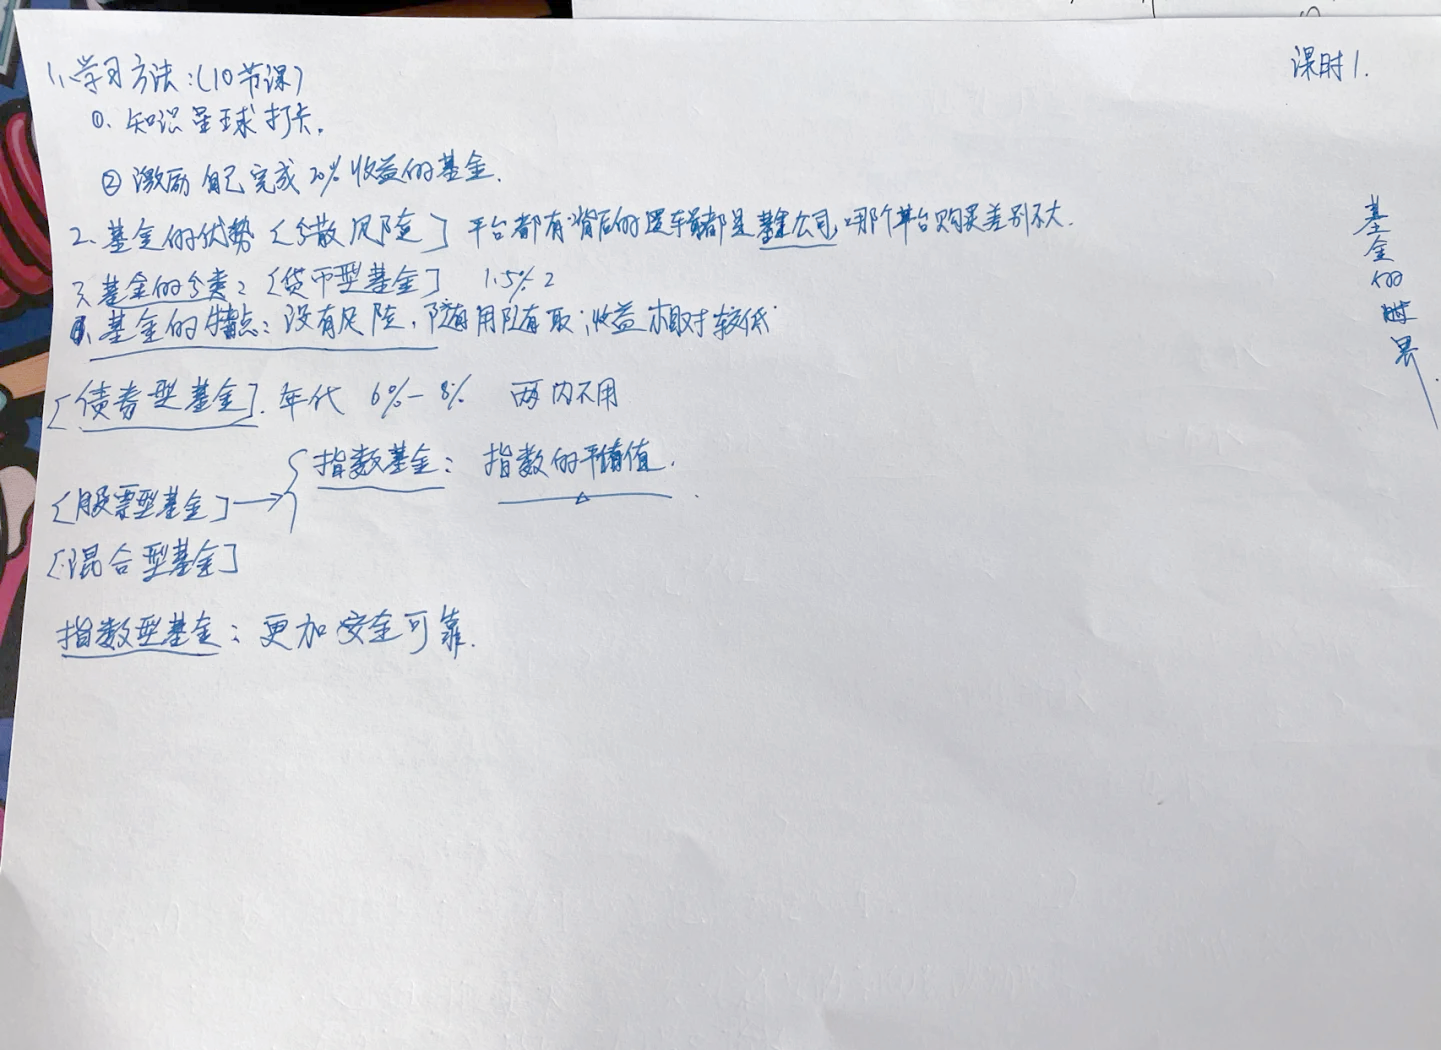 课时1.
1、学习方法:(10节课)
①、知识星球打卡.
② 激励自己完成20%收益的基金.
2、基金的优势〔分散风险〕平台都有背后的逻辑都是基金公司,哪个平台购买差别不大.
3、基金的分类:〔货币型基金〕 1.5% 2
基金的特点:没有风险,随用随取,收益相对较低
〔债券型基金〕. 年代 6%-8% 两内不用
〔股票型基金〕→{指数基金: 指数的平均值.
〔混合型基金〕
指数型基金:更加安全可靠.
基金的